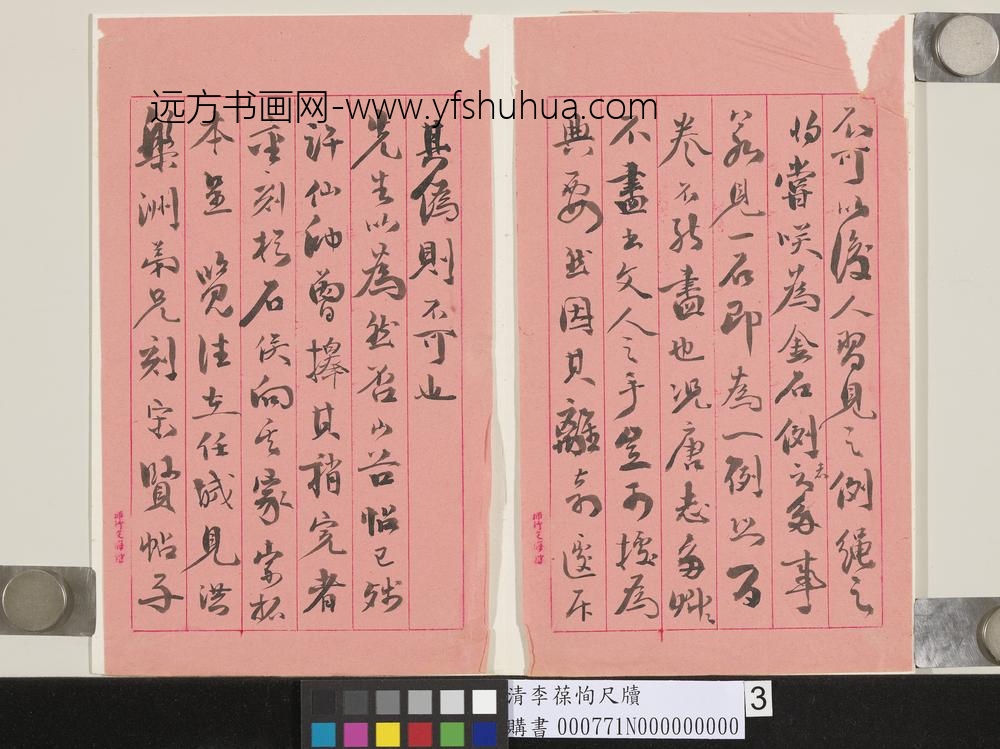 远方书画网-www.yfshuhua.com
不可以後人習見之例繩之
恂嘗咲為金石例者之多事
若見一石即為一例百
卷不能盡也況唐志多艸〻
不盡出文人之手豈可據為
典要然因其離奇遽斥
其偽則不可也
先生以為然否山谷帖已殘
許仙帥曾擇其稍完者
重刻於石俟向其家索拓
本呈覽往在任城見洪
洲弟兄刻宋賢帖子
清李葆恂尺牘
購書 000771N000000000
3